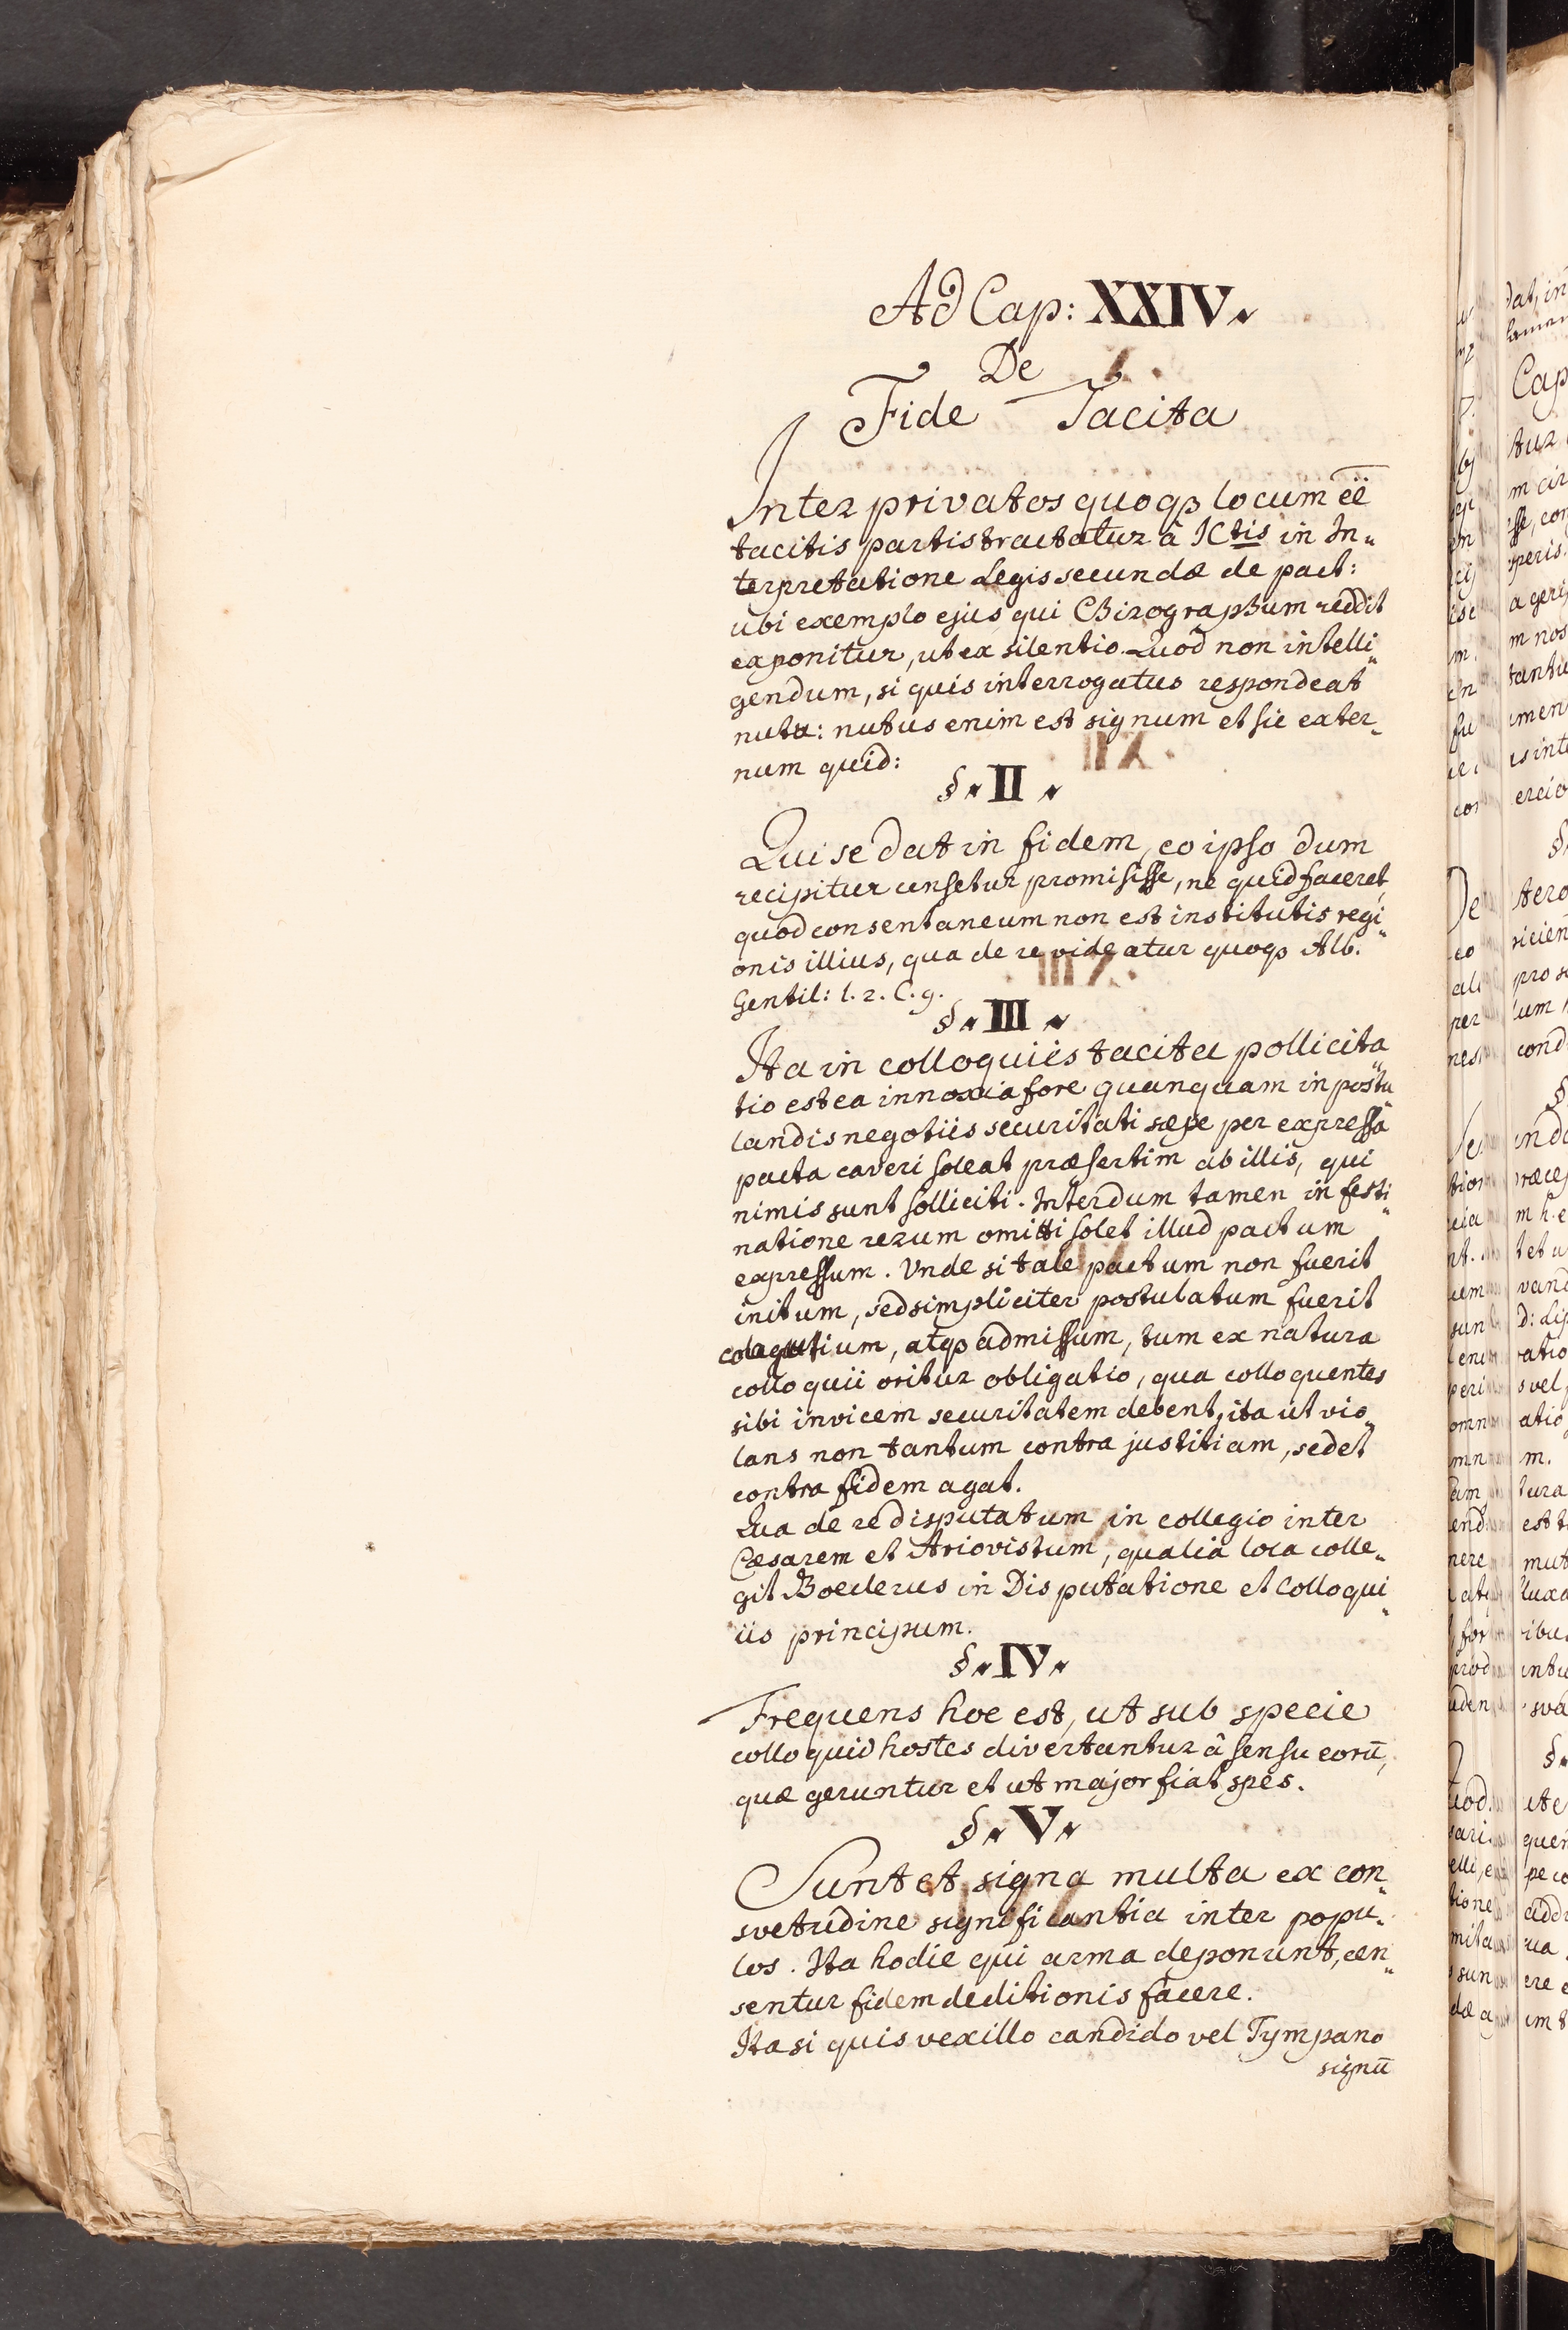 Ad Cap: XXIV.
De
Fide Tacita
Inter privatos quoqȝ locum ēē
tacitis partis tractatur à ICtis in In„
terpretatione Legis secundæ de pact:
ubi exemplo ejus qui Chirographum reddit
exponitur, ut ex silentio. Quod non intelli„
gendum, si quis interrogatus respondeat
nutu: nutus enim est signum et sic exter„
num quid:
§. II.
Qui se dat in fidem, eo ipso dum
recipitur censetur promisisse, ne quid faceret,
quod consentaneum non est institutis regi„
onis illius, qua de re videatur quoqȝ Alb.
Gentil: l. 2. C. 9.
§. III.
Ita in colloquiis tacita pollicita„
tio est ea innoxia fore quanquam in postu„
landis negotiis securitati sæpe per expressa
pacta caveri soleat præsertim ab illis, qui
nimis sunt solliciti. Interdum tamen in festi„
natione rerum omitti solet illud pactum
expressum. Unde si tale pactum non fuerit
initum, sed simpliciter postulatum fuerit
atqȝ admissum, tum ex natura
colloquii oritur obligatio, qua colloquentes
sibi invicem securitatem debent, ita ut vio„
lans non tantum contra justitiam, sed et
contra fidem agat.
Qua de re disputatum in collegio inter
Cæsarem et Ariovistum, qualia loca colle„
git Boeclerus in Disputatione et Colloqui„
iis principum.
§. IV.
Frequens hoc est, ut sub specie
colloquio hostes divertantur à sensu eorū,
quæ geruntur et ut major fiat spes.
§. V.
Sunt et signa multa ex con„
svetudine significantia inter popu„
los. Ita hodie qui arma deponunt, cen„
sentur fidem deditionis facere.
Ita si quis vexillo candido vel Tympano
signū